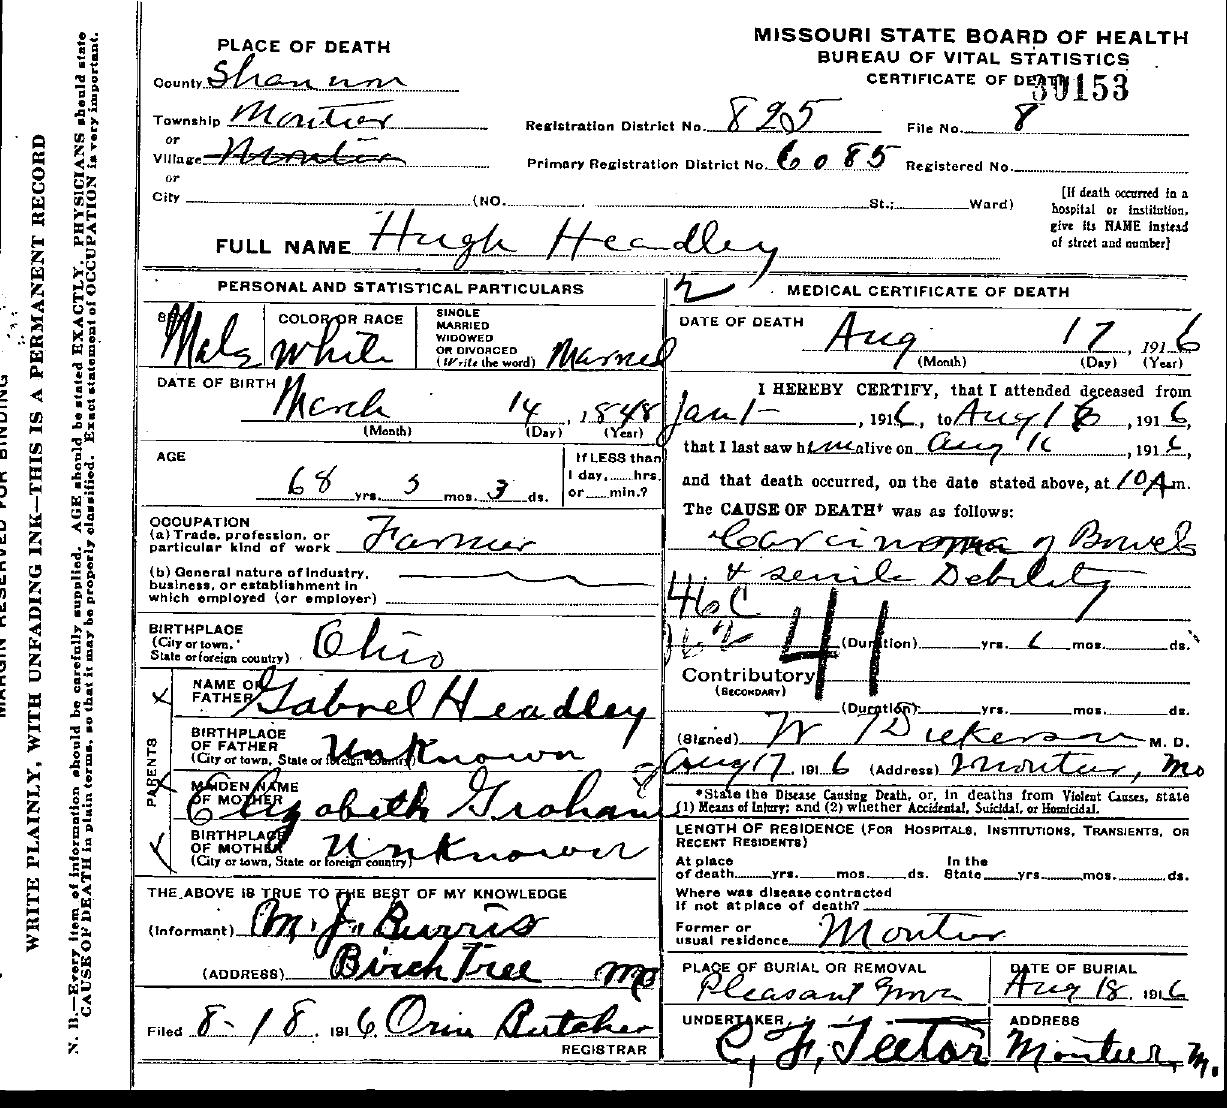 MARGIN RESERVED FOR BINDING
WRITE PLAINLY, WITH UNFADING INK—THIS IS A PERMANENT RECORD
N. B.—Every item of information should be carefully supplied. AGE should be stated EXACTLY. PHYSICIANS should state
CAUSE OF DEATH in plain terms, so that it may be properly classified. Exact statement of OCCUPATION is very important.
MISSOURI STATE BOARD OF HEALTH
BUREAU OF VITAL STATISTICS
CERTIFICATE OF DEATH
30153
PLACE OF DEATH
County Shannon
Township Montier
or
Village Montier
or
City (NO. St.; Ward)
Registration District No. 825 File No. 8
Primary Registration District No. 6085 Registered No.
[If death occurred in a
hospital or institution,
give its NAME instead
of street and number]
FULL NAME Hugh Headley
PERSONAL AND STATISTICAL PARTICULARS
SEX Male
COLOR OR RACE White
SINGLE
MARRIED
WIDOWED
OR DIVORCED
(Write the word) Married
DATE OF BIRTH March 14, 1848
(Month) (Day) (Year)
AGE
68 yrs. 5 mos. 3 ds.
If LESS than
1 day, hrs.
or min.?
OCCUPATION
(a) Trade, profession, or
particular kind of work Farmer
(b) General nature of industry,
business, or establishment in
which employed (or employer)
BIRTHPLACE
(City or town,
State or foreign country) Ohio
PARENTS
NAME OF
FATHER Gabriel Headley
BIRTHPLACE
OF FATHER
(City or town, State or foreign country) Unknown
MAIDEN NAME
OF MOTHER Elizabeth Graham
BIRTHPLACE
OF MOTHER
(City or town, State or foreign country) Unknown
THE ABOVE IS TRUE TO THE BEST OF MY KNOWLEDGE
(Informant) M. J. Burris
(ADDRESS) Birch Tree Mo
Filed 8-18, 1916 Orin Butcher
REGISTRAR
2 MEDICAL CERTIFICATE OF DEATH
DATE OF DEATH Aug 17, 1916
(Month) (Day) (Year)
I HEREBY CERTIFY, that I attended deceased from
Jan 1-, 1916, to Aug 16, 1916,
that I last saw him alive on Aug 16, 1916,
and that death occurred, on the date stated above, at 10 A m.
The CAUSE OF DEATH* was as follows:
Carcinoma of Bowels
& senile Debility
46C
41
(Duration) yrs. 6 mos. ds.
Contributory
(SECONDARY)
(Duration) yrs. mos. ds.
(Signed) W Dickerson M. D.
Aug 17, 1916 (Address) Montier, Mo
*State the Disease Causing Death, or, in deaths from Violent Causes, state
(1) Means of Injury; and (2) whether Accidental, Suicidal, or Homicidal.
LENGTH OF RESIDENCE (FOR HOSPITALS, INSTITUTIONS, TRANSIENTS, OR
RECENT RESIDENTS)
At place In the
of death yrs. mos. ds. State yrs. mos. ds.
Where was disease contracted
if not at place of death?
Former or
usual residence Montier
PLACE OF BURIAL OR REMOVAL
Pleasant Grove
DATE OF BURIAL
Aug 18, 1916
UNDERTAKER
C. F. Teetor
ADDRESS
Montier, M.